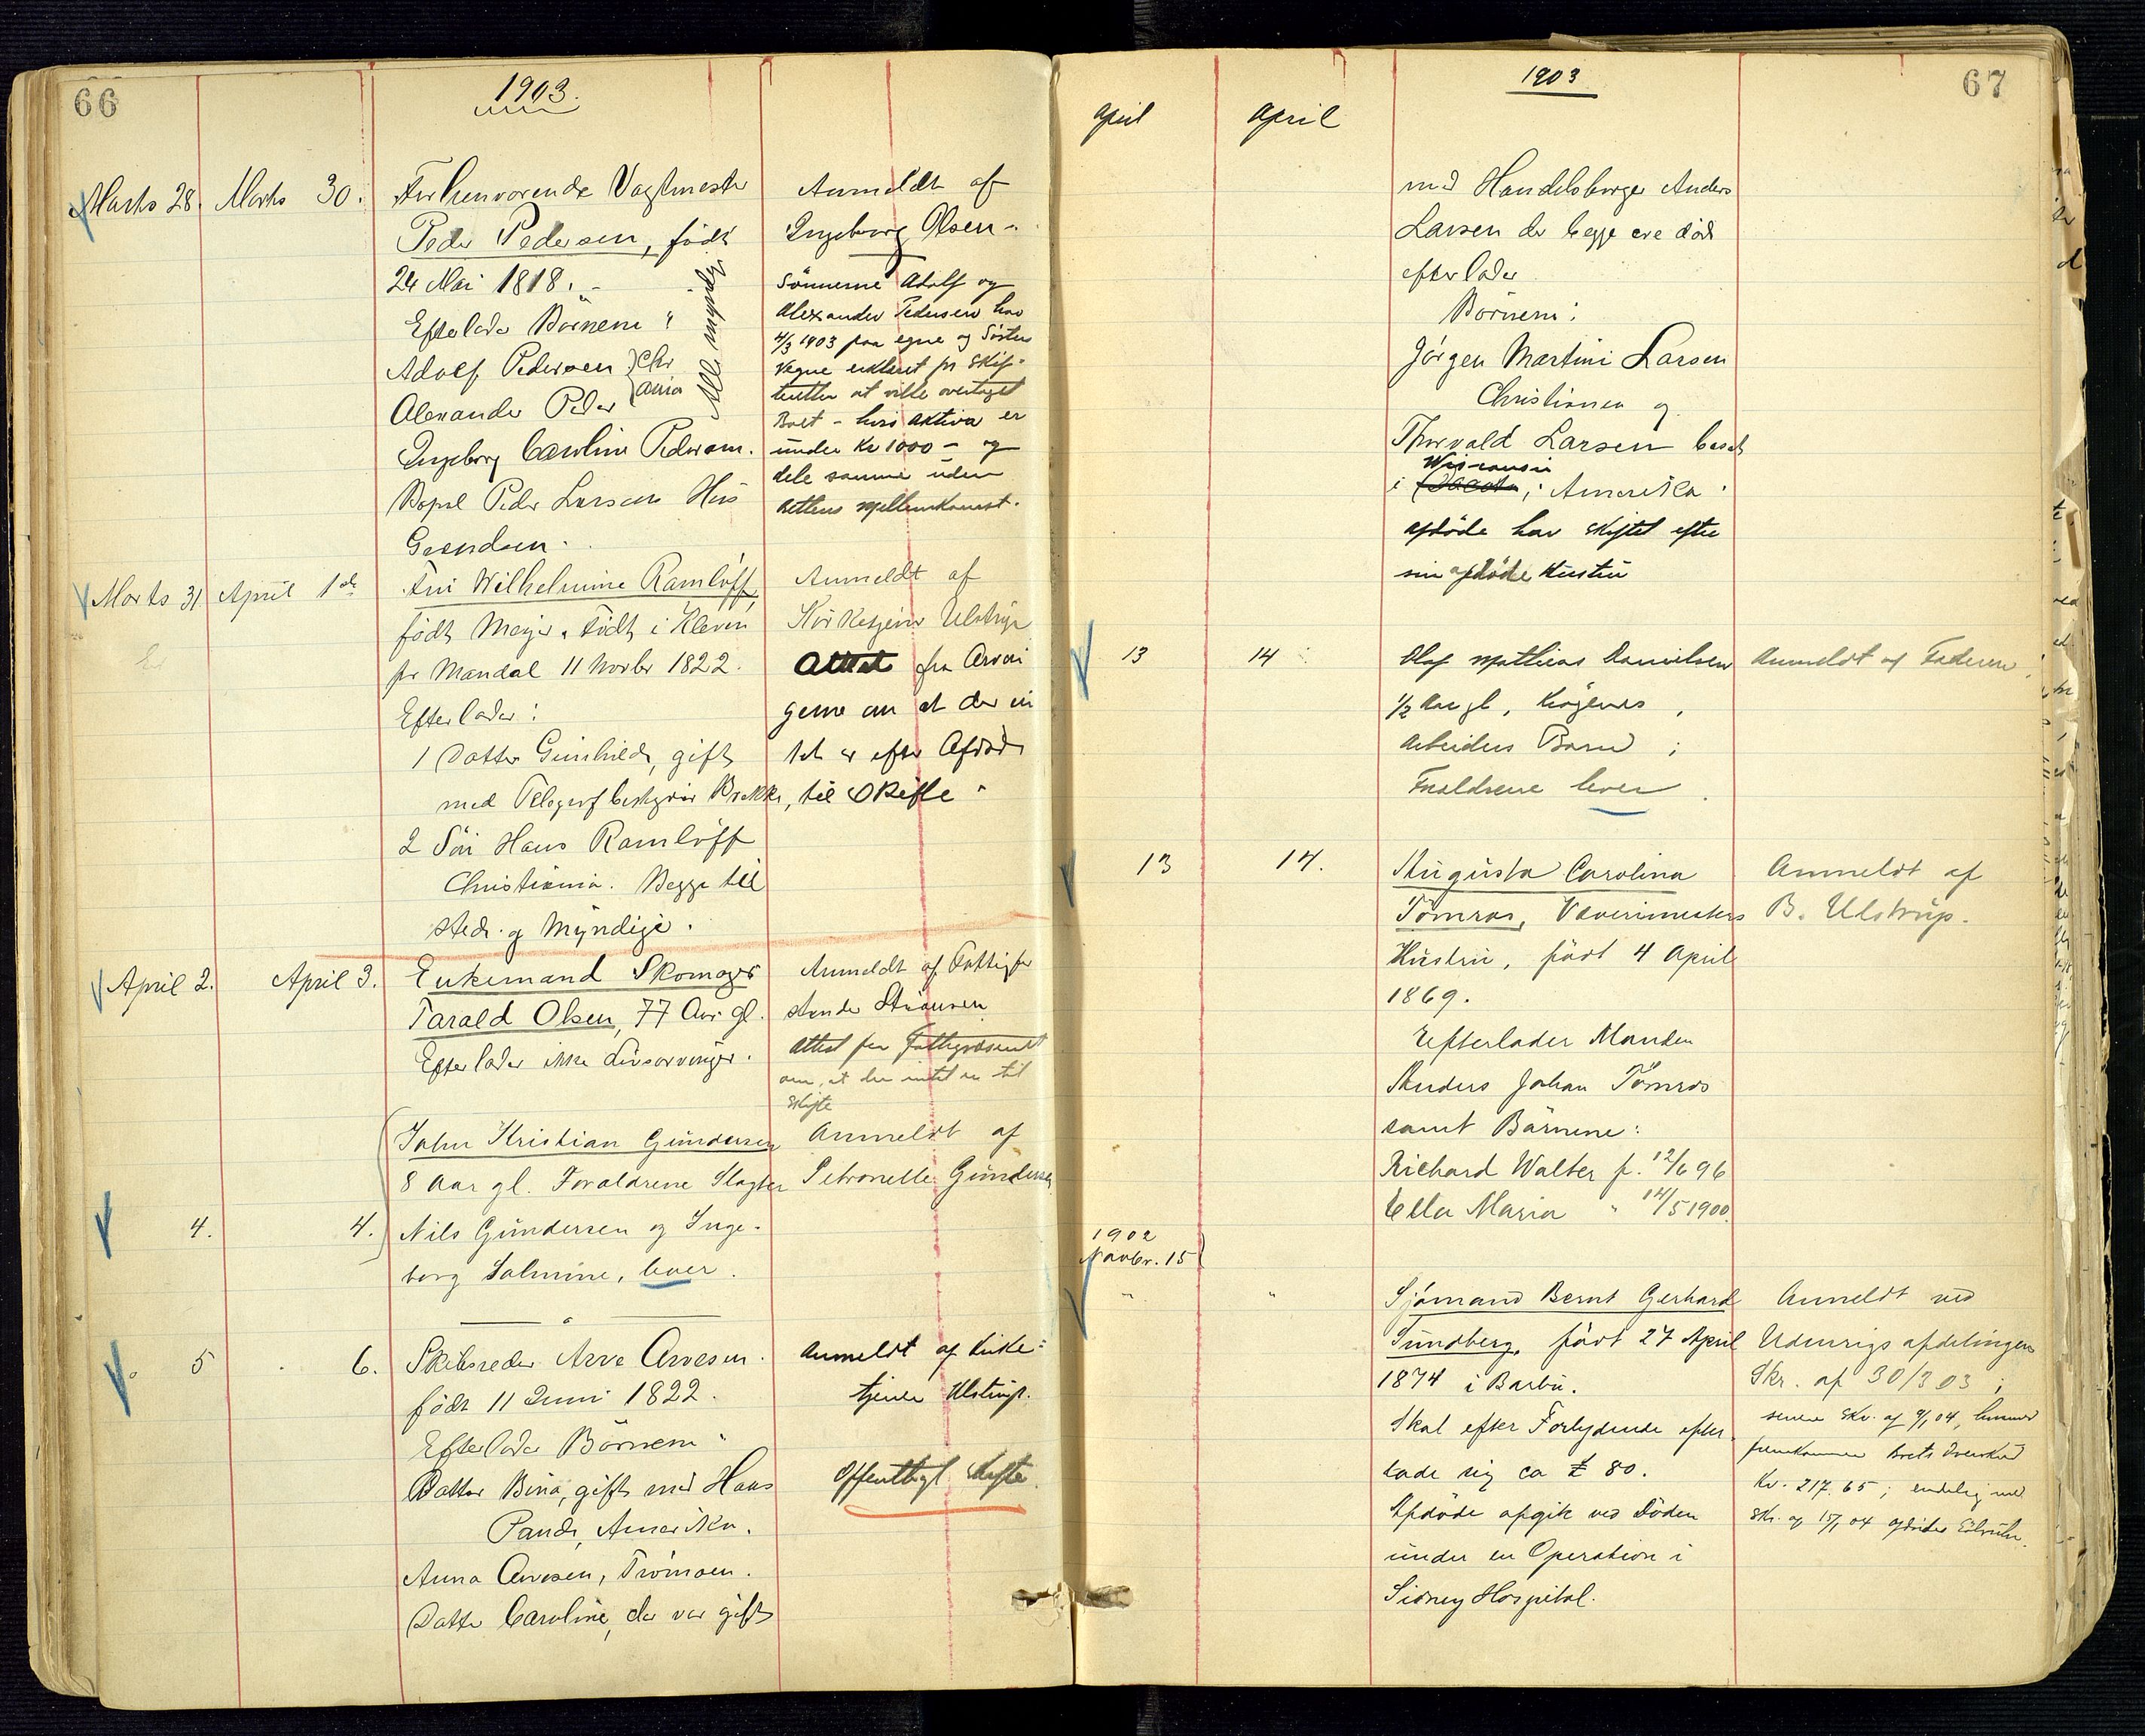 66
1903.
Marts 28. Marts 30. Forhenværende Vagtmester Anmeldt af
Peder Pedersen, født Ingeborg Olsen.
24 Mai 1818. Sønnerne Adolf og
Efterlader Børnene: Alexander Pedersen har
4/3 1903 paa egne og Søsters
Adolf Pedersen } Chr Vegne erklæret for Skif-
Alle myndige
Alexander Peder } ania teretten at ville overtaget
Boet - hvis Aktiva er
Ingeborg Caroline Pedersen. under Kr 1000 - og
dele samme uden
Bopæl Peder Larsens Hus Rettens Mellemkomst.
Marts 31 April 1ste Fru Wilhelmine Ramløff, Anmeldt af
født Meyer. Født i Kleven Kirketjener Ulstrup
pr Mandal 11 Novbr 1822. Attest fra Arvin
Efterlader: gerne om at der in
1 Datter Gunhild, gift tet er efter Afdøde
med Telegrafbestyrer Brekke, til Skifte
2 Søn Hans Ramløff
Christiania. Begge til
stede og Myndige.
April 2. April 3. Enkemand Skomager Anmeldt af Fattigfor
Tarald Olsen, 77 Aar gl. stander
Efterlader ikke Livsarvinger. Attest fra Fattigvæsenet
om, at der intet er til
Skifte
John Kristian Gundersen Anmeldt af
8 Aar gl. Forældrene Slagter Petronelle Gundersen
4. 4. Nils Gundersen og Inge-
borg Salmine, lever.
5 6. Skibsreder Arve Arvesen. Anmeldt af Kirke-
født 11 Juni 1822. tjener Ulstrup.
Efterlader Børnene:
Datter Bina, gift med Hans Offentligt Skifte.
Amerika.
Anna Arvesen, Tromøen.
Datter Caroline, der var gift
67
1903
April April
med Handelsborger Anders
Larsen der begge ere død
efterlader
Børnene:
Jørgen Martini Larsen
Christiania og
Thorvald Larsen bosat
Wisconsin
i Dacota, i Amerika
afdøde har skiftet efter
sin afdøde Hustru
13 14 Olaf Mathias Danielsen Anmeldt af Faderen
1/2 Aar gl,
Arbeiders Barn;
Forældrene lever
13 14. Augusta Carolina Anmeldt af
Tömros, Væverimesters B. Ulstrup.
Hustru, født 4 April
1869.
Efterlader Manden
Anders Johan Tömros
samt Børnene:
Richard Walter f. 12/6 96
Ella Maria " 14/5 1900.
1902
Novbr. 15
" " Sjømand Bernt Gerhard Anmeldt ved
Sundberg, født 27 April Udenrigsafdelingens
1874 i Barbu. Skr. af 30/3 03;
Skal efter Forlydende efter senere Skr. af 9/1 04, hvorved
lade sig ca £ 80. fremkommer Boets Overskud
Kr. 217.65; endelig ved
Afdøde afgik ved Døden Skr. af 15/1 04
under en Operation i
Sidney Hospital.